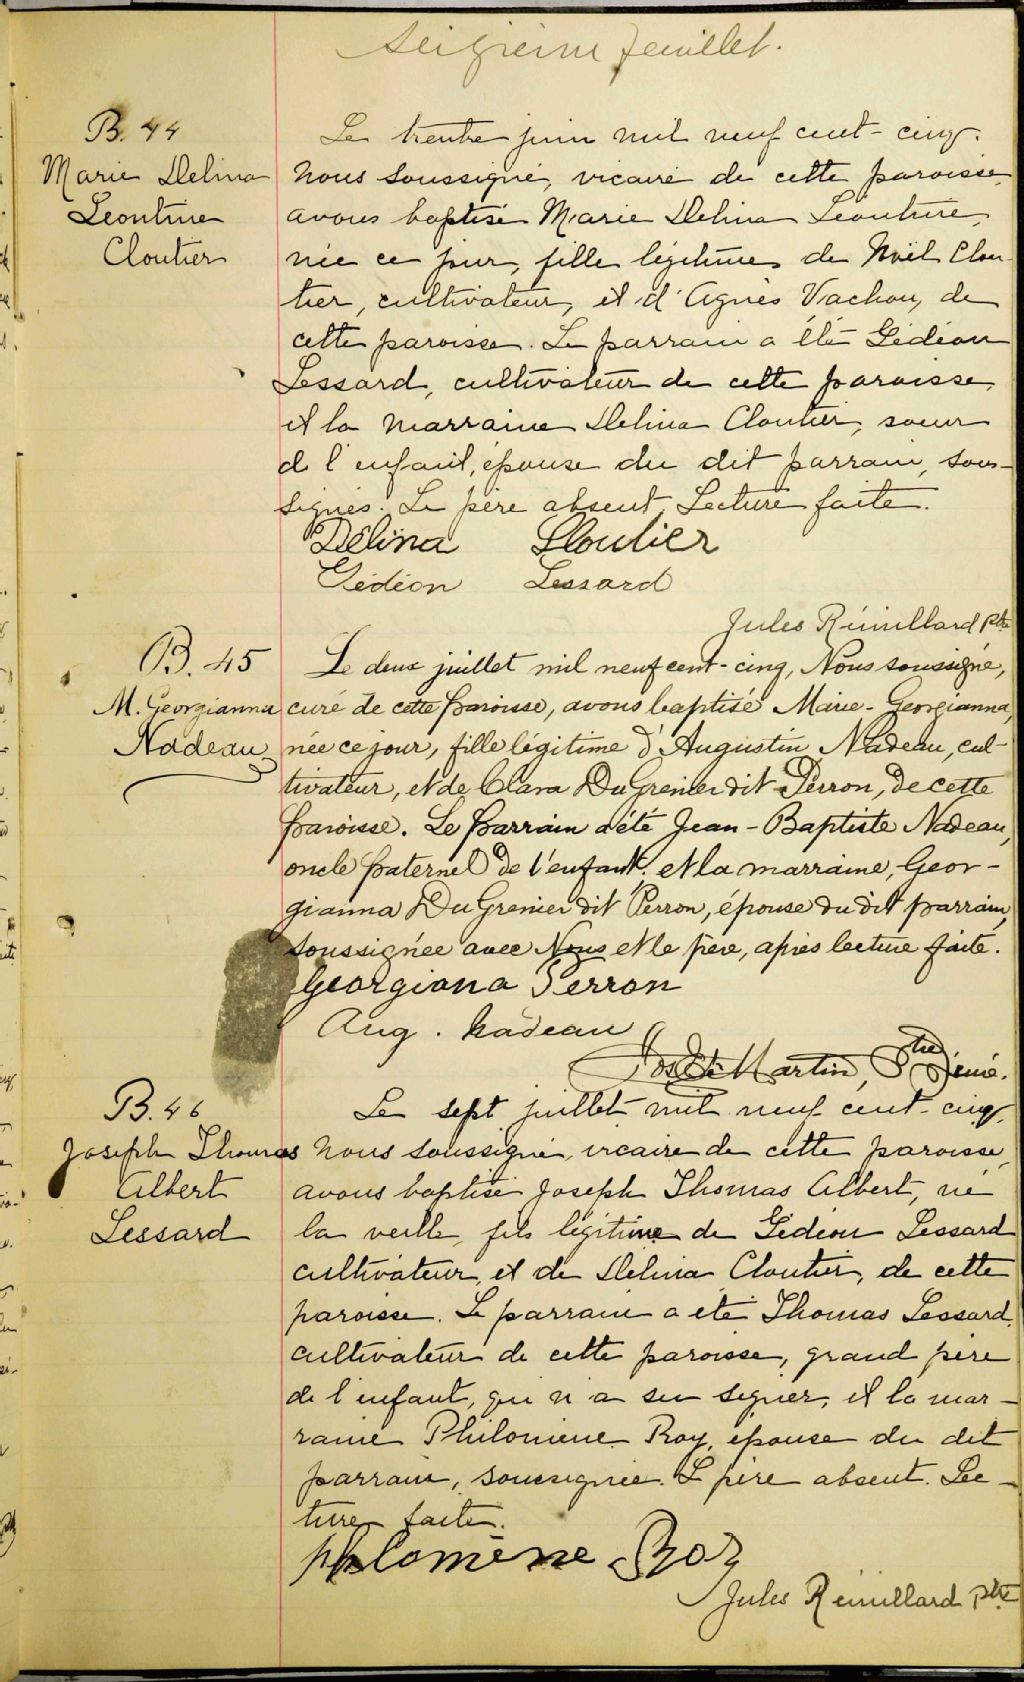 Seizième feuillet.
B. 44
Marie Delina
Leontine
Cloutier
Le trente juin mil neuf cent-cinq.
Nous soussigné, vicaire de cette paroisse,
avons baptisé Marie Delina Léontine,
née ce jour, fille légitime de Noël Clou-
tier, cultivateur, et d'Agnès Vachon, de
cette paroisse. Le parrain a été Gédéon
Lessard, cultivateur de cette paroisse,
et la marraine Delina Cloutier, soeur
de l'enfant, épouse du dit parrain, sous-
signés. Le père absent. Lecture faite.
Délina Cloutier
Gédéon Lessard
Jules Rémillard Ptre
B. 45
M. Georgianna
Nadeau
Le deux juillet mil neuf cent-cinq, Nous soussigné,
curé de cette paroisse, avons baptisé Marie-Georgianna,
née ce jour, fille légitime d'Augustin Nadeau, cul-
tivateur, et de Clara DuGrenier dit Perron, de cette
paroisse. Le parrain a été Jean-Baptiste Nadeau,
oncle paternel de l'enfant, et la marraine, Geor-
gianna DuGrenier dit Perron, épouse du dit parrain,
soussignée avec Nous et le père, après lecture faite.
Georgiana Perron
Aug. Nadeau
Martin, Ptre Curé.
B. 46
Joseph Thomas
Albert
Lessard
Le sept juillet mil neuf cent-cinq,
Nous soussigné, vicaire de cette paroisse,
avons baptisé Joseph Thomas Albert, né
la veille, fils légitime de Gédéon Lessard
cultivateur, et de Délina Cloutier, de cette
paroisse. Le parrain a été Thomas Lessard,
cultivateur de cette paroisse, grand père
de l'enfant, qui n'a su signer, et la mar-
raine Philomène Roy, épouse du dit
parrain, soussignée. L père absent. Lec-
ture faite.
philomène Roy
Jules Rémillard Ptre